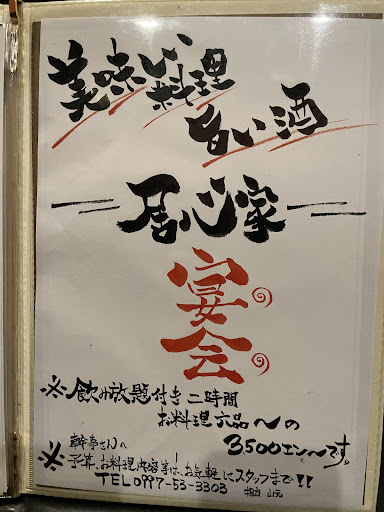 美味い料理
旨い酒
居心家
宴会
※飲み放題付き二時間
お料理六品〜の
3500エン〜です。
幹事さんの
※予算、お料理内容等は、お気軽にスタッフまで!!
TEL 0997-53-3303